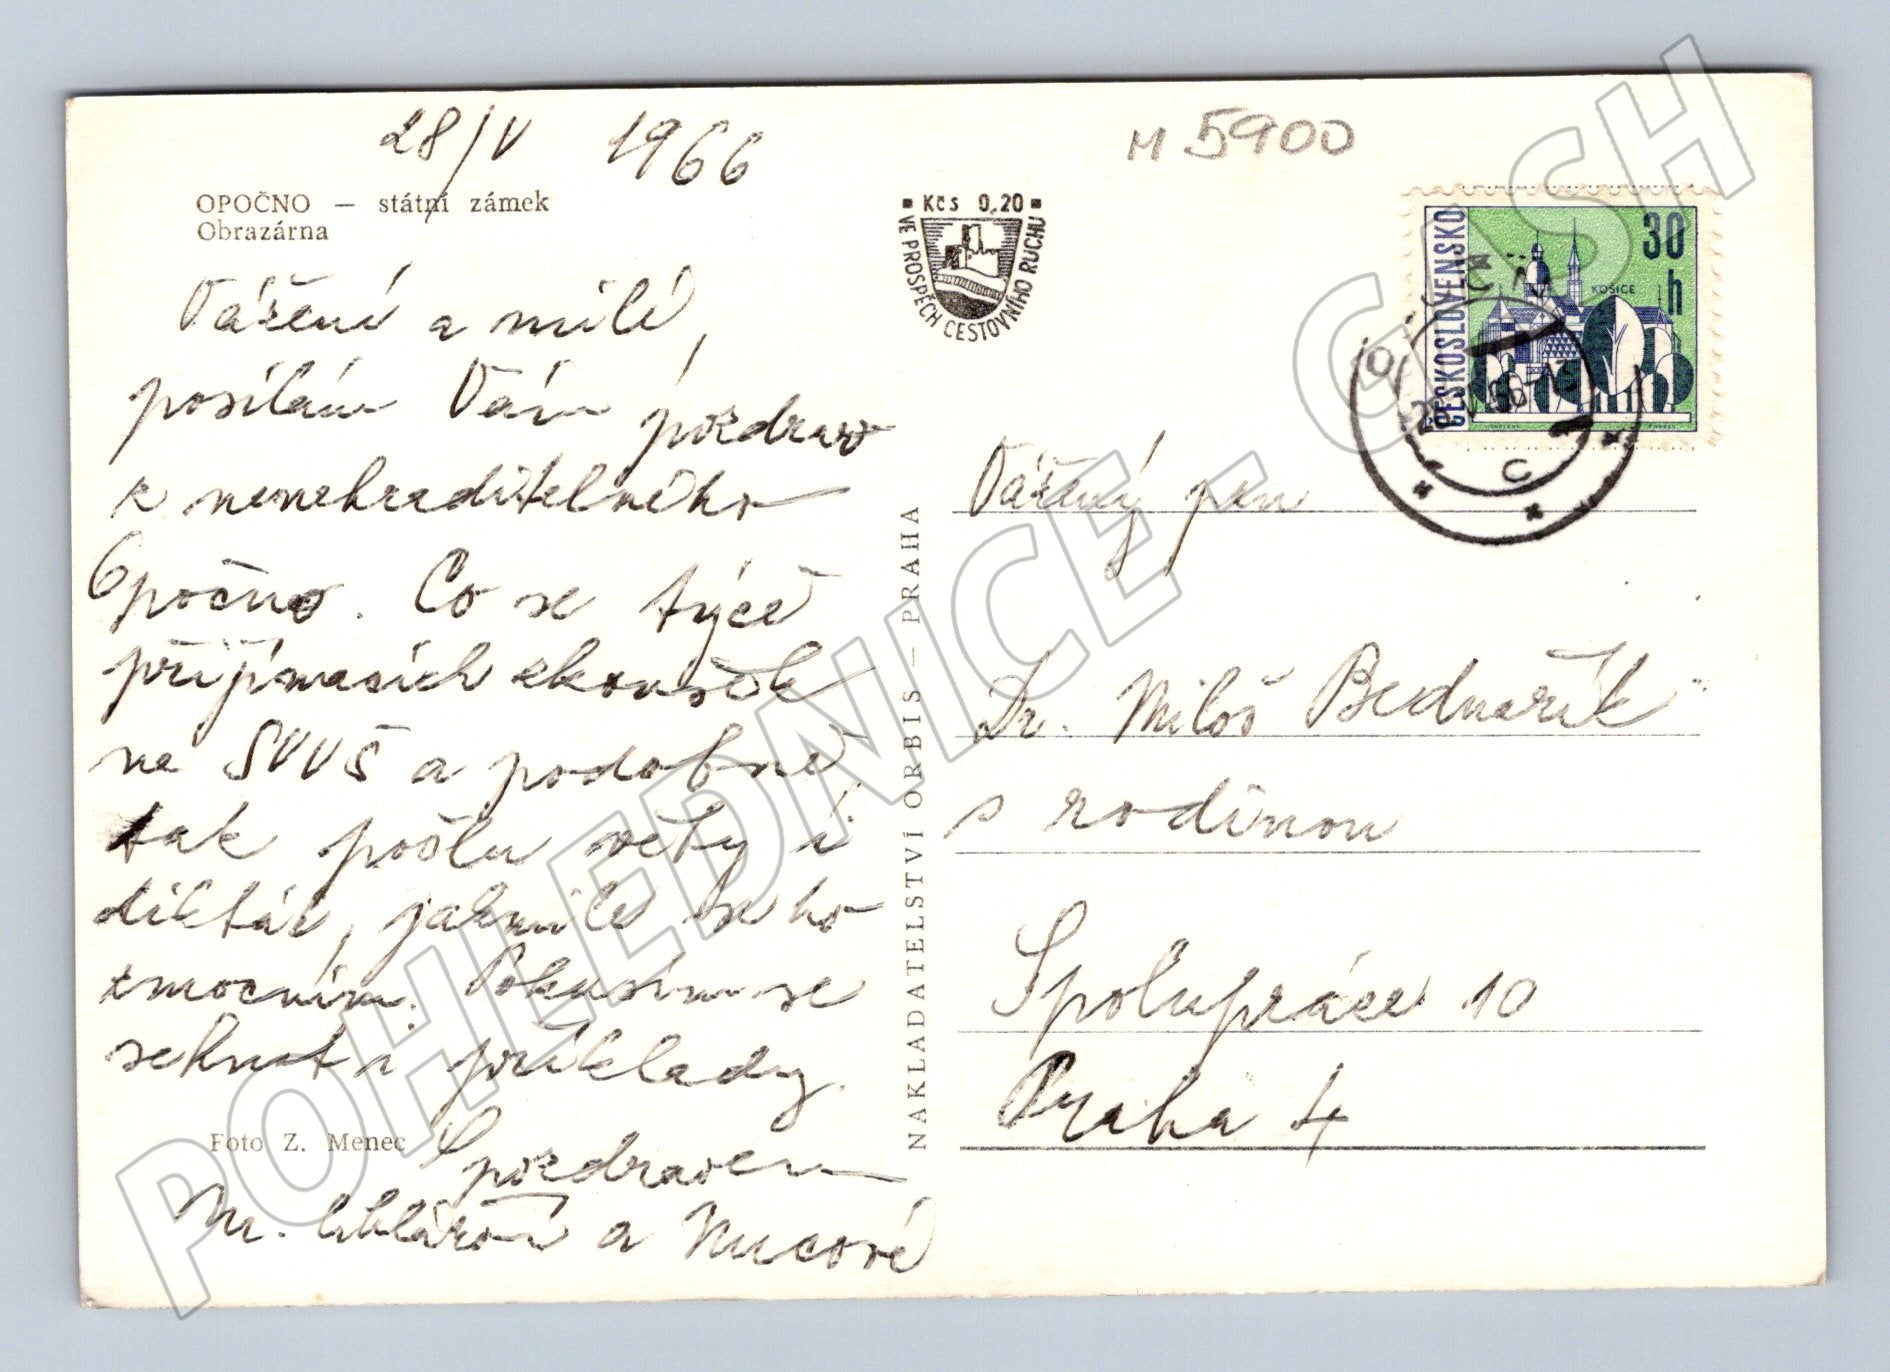 28/V 1966
M 5900
OPOČNO — státní zámek
Obrazárna
Kčs 0,20
VE PROSPĚCH CESTOVNÍHO RUCHU
ČESKOSLOVENSKO
30 h
KOŠICE
Vážení a milí,
posílám Vám pozdrav
z nenahraditelného
Opočno. Co se týče
přijímacích zkoušek
na SVVŠ a podobně,
tak pošlu věty i
diktát, jakmile se ho
zmocním. Pokusím se
sehnat i příklady.
S pozdravem
a Nucové
Foto Z. Menec
NAKLADATELSTVÍ ORBIS — PRAHA
Vážený pan
Dr. Miloš Bednařík
s rodinou
Spolupráce 10
Praha 4
POHLEDNICE - CASH